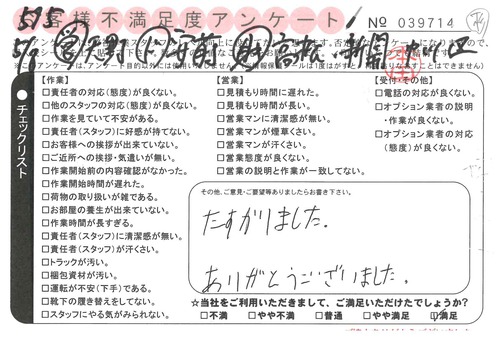 お客様不満足度アンケート
No 039714
チェックリスト
【作業】
□責任者の対応(態度)が良くない。
□他のスタッフの対応(態度)が良くない。
□作業を見ていて不安がある。
□責任者(スタッフ)に好感が持てない。
□お客様への挨拶が出来ていない。
□ご近所への挨拶・気遣いが無い。
□作業開始前の内容確認がなかった。
□作業開始時間が遅れた。
□荷物の取り扱いが雑である。
□お部屋の養生が出来ていない。
□作業時間が長すぎる。
□責任者(スタッフ)に清潔感が無い。
□責任者(スタッフ)が汗くさい。
□トラックが汚い。
□梱包資材が汚い。
□運転が不安(下手)である。
□靴下の履き替えをしてない。
□スタッフにやる気がみられない。
【営業】
□見積もり時間に遅れた。
□見積もり時間が長い。
□営業マンに清潔感が無い。
□営業マンが煙草くさい。
□営業マンが汗くさい。
□営業態度が良くない。
□営業の説明と作業が一致してない。
【受付・その他】
□電話の対応が良くない。
□オプション業者の説明
・作業が良くない。
□オプション業者の対応
(態度)が良くない。
その他、ご意見・ご要望等ありましたらお書き下さい。
たすかりました。
ありがとうございました。
☆当社をご利用いただきまして、ご満足いただけたでしょうか?
□不満 □やや不満 □普通 □やや満足 □満足